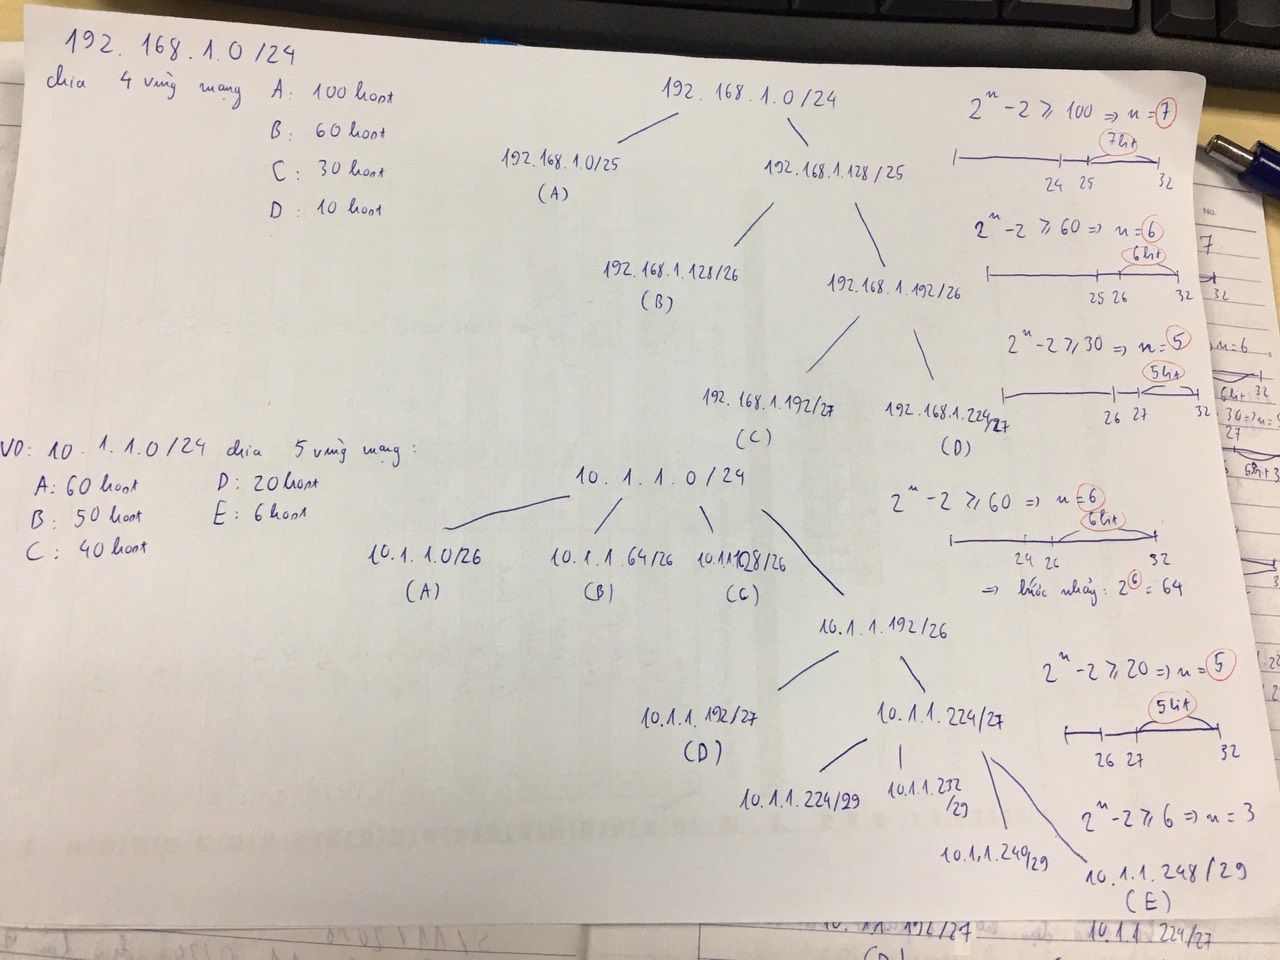 192.168.1.0/24
chia 4 vùng mạng A: 100 host
B: 60 host
C: 30 host
D: 10 host
192.168.1.0/24
192.168.1.0/25
(A)
192.168.1.128/25
192.168.1.128/26
(B)
192.168.1.192/26
192.168.1.192/27
(C)
192.168.1.224/27
(D)
2^n - 2 ≥ 100 => n = 7
7bit
24 25 32
2^n - 2 ≥ 60 => n = 6
6bit
25 26 32
2^n - 2 ≥ 30 => n = 5
5bit
26 27 32
VD: 10.1.1.0/24 chia 5 vùng mạng:
A: 60 host D: 20 host
B: 50 host E: 6 host
C: 40 host
10.1.1.0/24
10.1.1.0/26
(A)
10.1.1.64/26
(B)
10.1.1.128/26
(C)
10.1.1.192/26
10.1.1.192/27
(D)
10.1.1.224/27
10.1.1.224/29
10.1.1.232
/29
10.1.1.240/29
10.1.1.248/29
(E)
2^n - 2 ≥ 60 => n = 6
6bit
24 26 32
=> bước nhảy: 2^6 = 64
2^n - 2 ≥ 20 => n = 5
5bit
26 27 32
2^n - 2 ≥ 6 => n = 3
No.
7
32
n=6
6bit 32
27
10.1.1.192/27
10.1.1.224/27